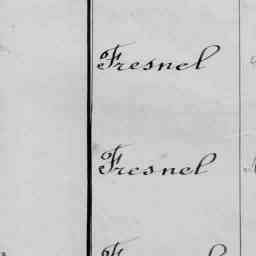 Fresnel
Fresnel